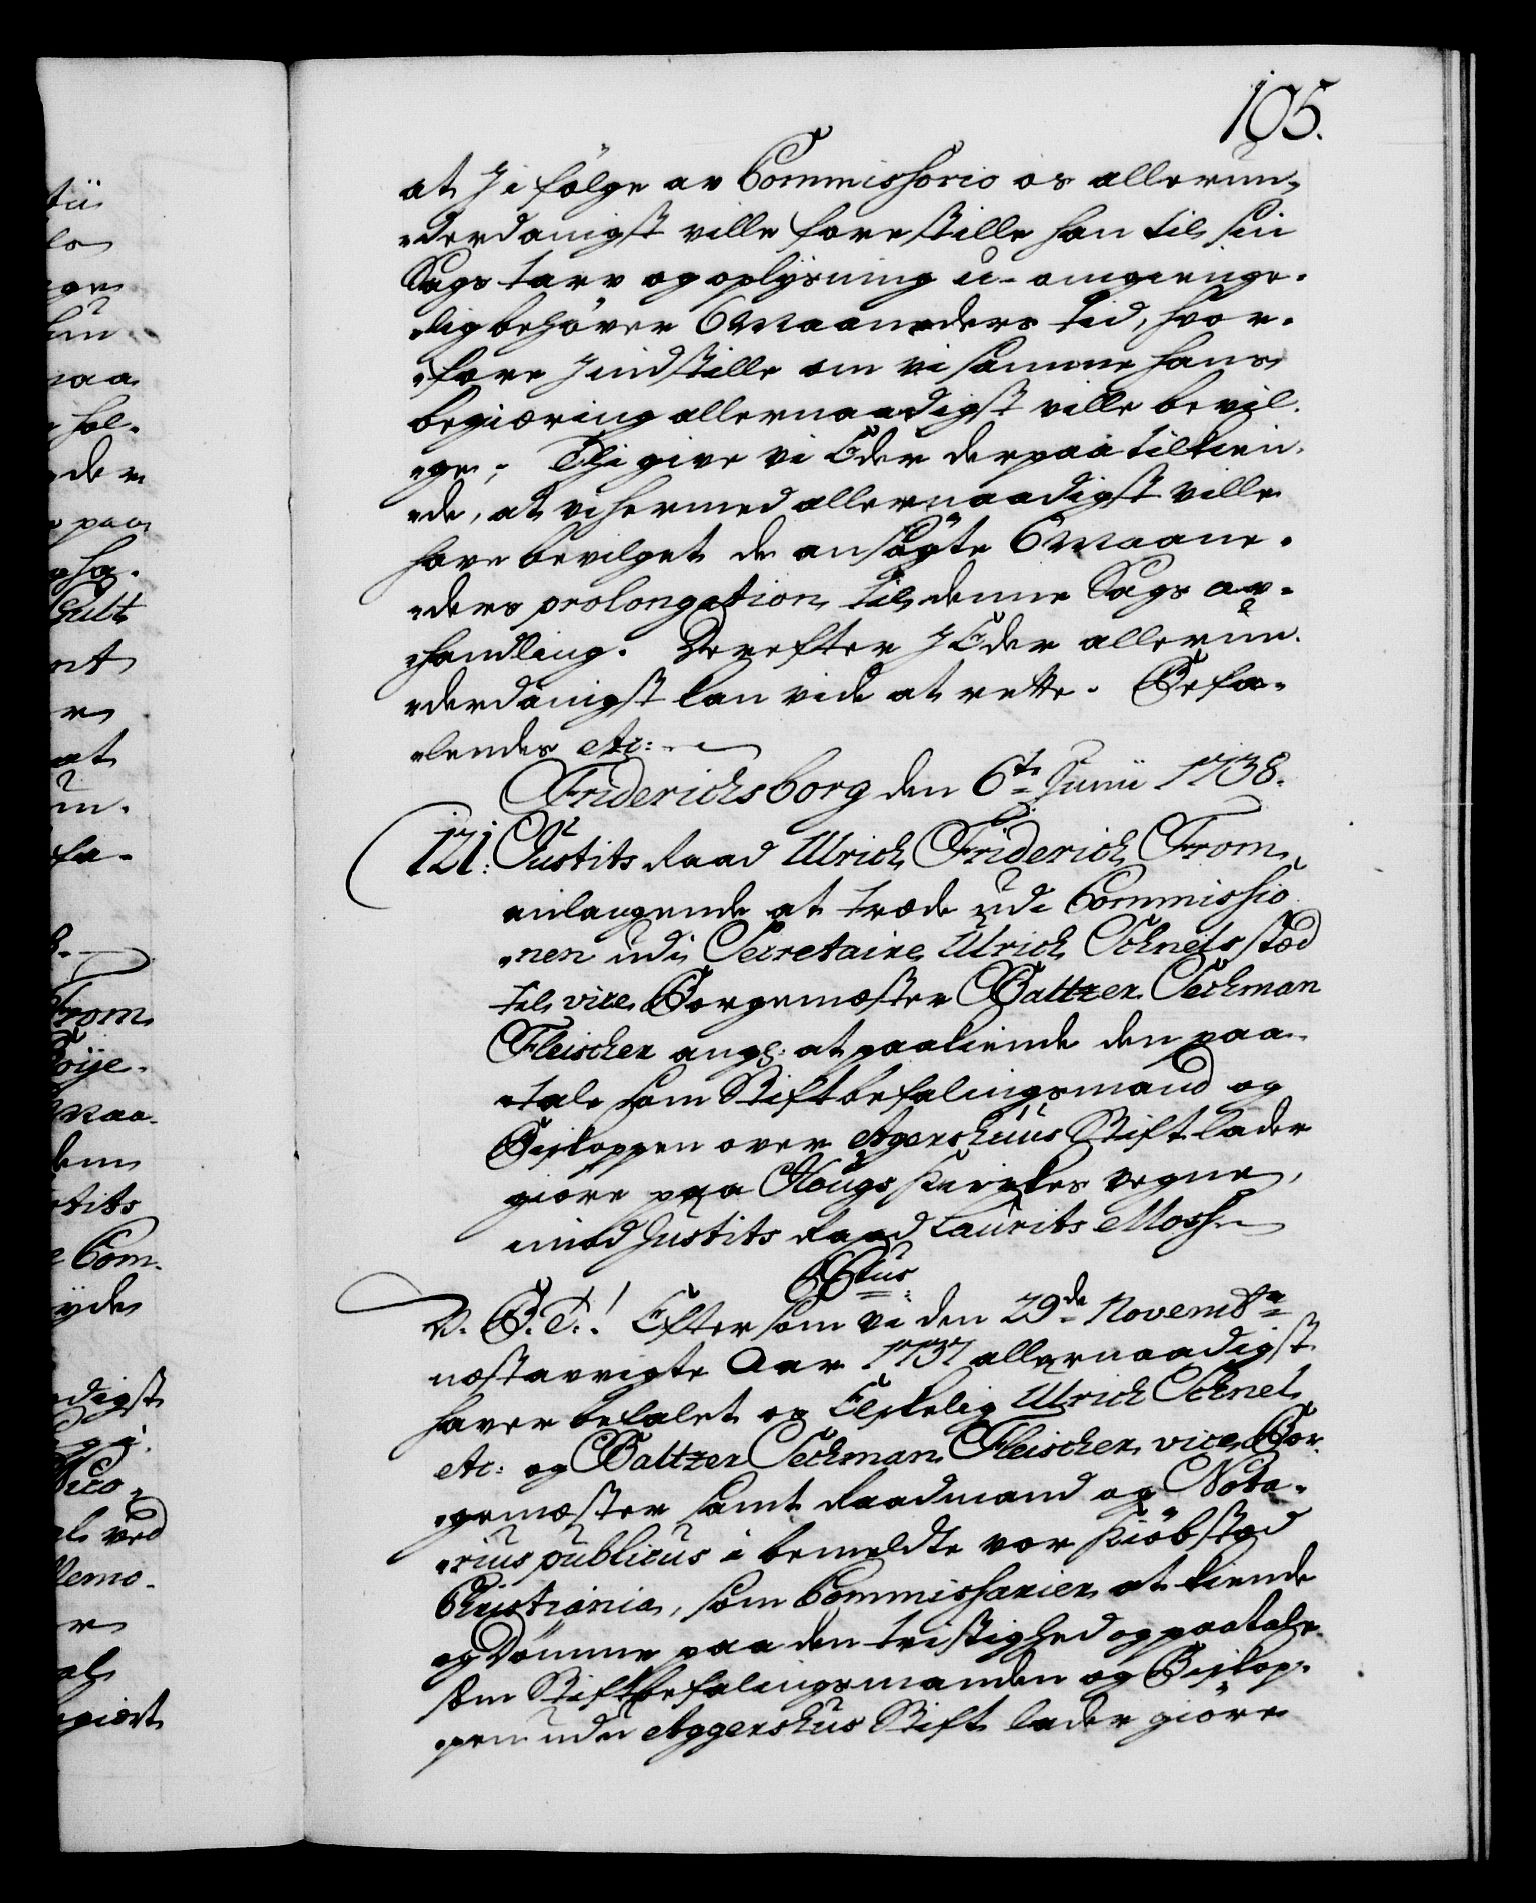 105.
at I i følge av Commissorio os allerun-
derdanigst ville forestille han til sin
Sags tarv og oplysning u-omgienge-
lig behøver 6 Maaneders tid, hvor-
fore I indstille om vi samme hans
begiæring allernaadigst ville bevil-
ge; Thi give vi Eder derpaa tilkien-
de, at vi hermed allernaadigst ville
have bevilget de ansøgte 6 Maane-
ders prolongation til denne Sags av-
handling. Derefter I Eder allerun-
derdanigst kan vide at rette. Befa-
lendes etc:
Friderichsborg den 6te Junii 1738.
121. Justits Raad Ulrich Friderich From
anlangende at træde udi Commissio
nen udi Secretaire Ulrich Schnels stæd
til vice Borgemæster Baltzer Sechman
Fleischer ang: at paakiende den paa-
tale som Stiftbefalingsmand og
Biskoppen over Agershuus Stift lader
giøre paa Hougs Kirkes vegne,
imod Justits Raad Laurits Moss
V. G. T.! Eftersom vi den 29de Novembr
næstavvigte Aar 1737 allernaadigst
haver befalet os Elskelig Ulrich Schnel
etc: og Baltzer Sechman Fleischer, vice Bor-
gemæster samt Raadmand og Nota-
rius publicus i bemeldte vor Kiøbstæd
Christiania, som Commissarier at kiende
og Dømme paa den tvistighed og paatale
som Stiftbefalingsmanden og Biskop-
pen udi Aggershus Stift lader giøre